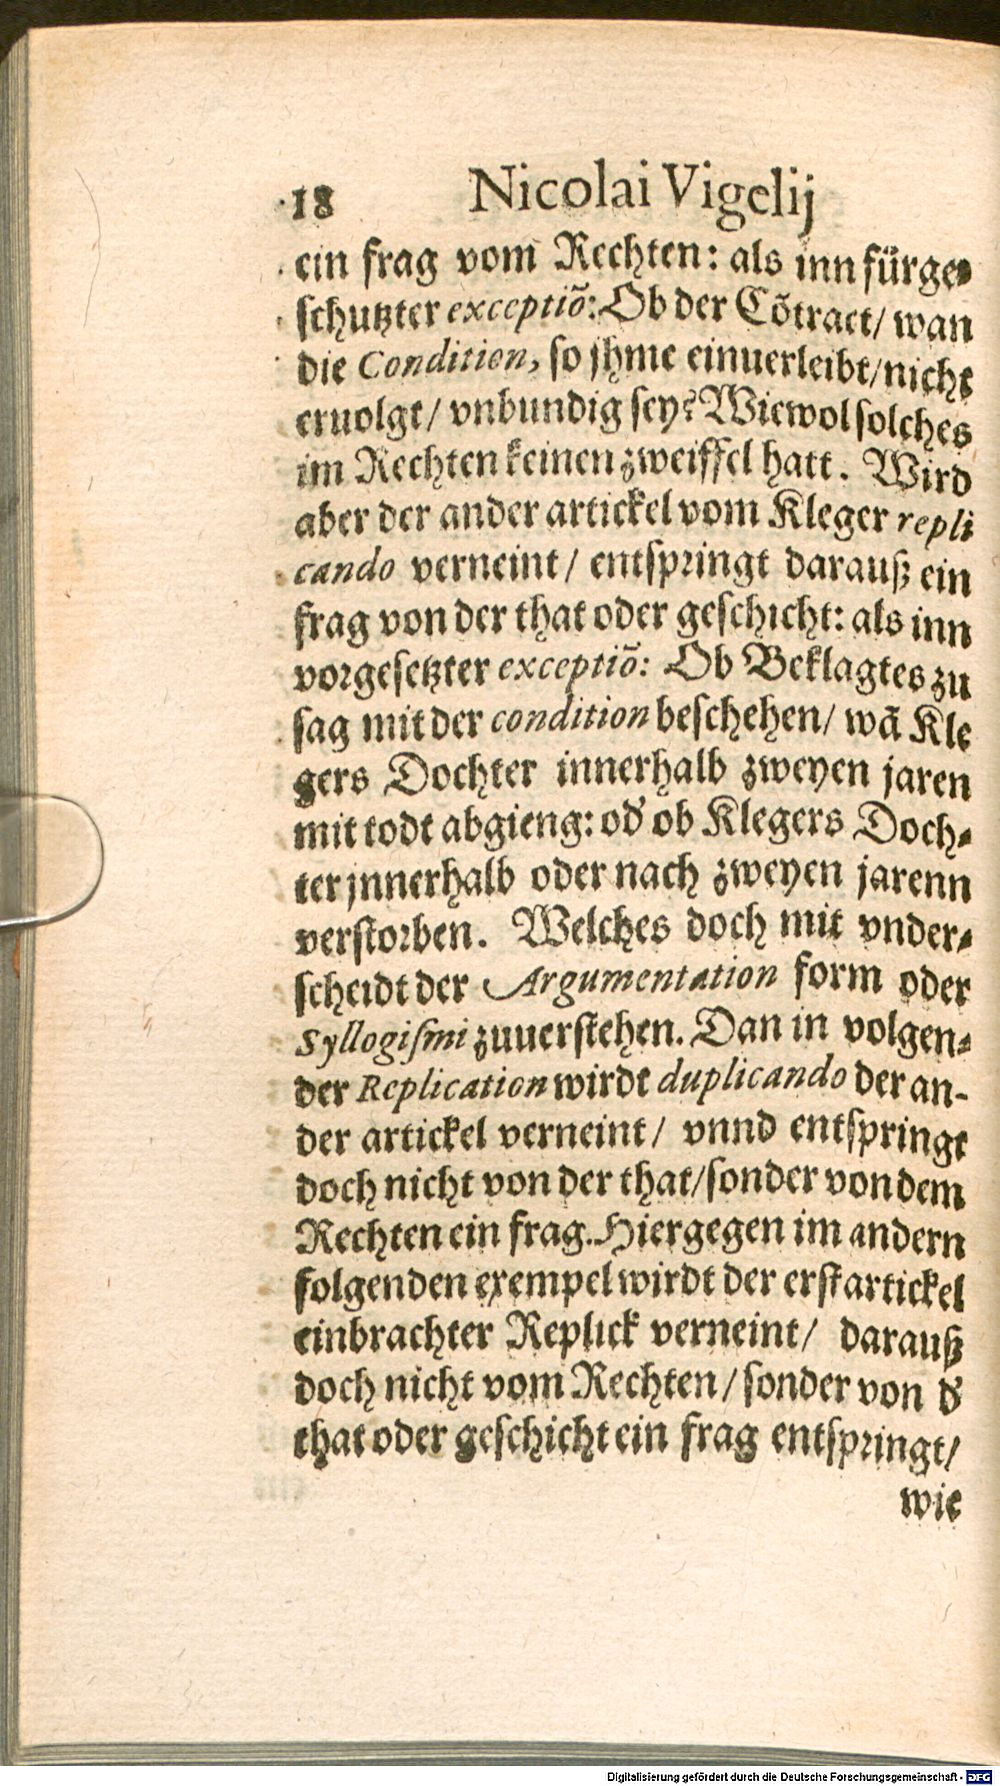 18 Nicolai Vigelij
ein frag vom Rechten: als inn fürge-
schutzter exceptiõ: Ob der Cõtract/ wan
die Condition, so jhme einuerleibt/nicht
eruolgt/ vnbundig sey? Wiewol solches
im Rechten keinen zweiffel hatt. Wird
aber der ander artickel vom Kleger repli
cando verneint/ entspringt darauß ein
frag von der that oder geschicht: als inn
vorgesetzter exceptiõ: Ob Beklagtes zu
sag mit der condition beschehen/ wã Kle
gers Dochter innerhalb zweyen jaren
mit todt abgieng: od' ob Klegers Doch-
ter jnnerhalb oder nach zweyen jarenn
verstorben. Welches doch mit vnder-
scheidt der Argumentation form oder
Syllogiſmi zuuerstehen. Dan in volgen-
der Replication wirdt duplicando der an-
der artickel verneint/ vnnd entspringt
doch nicht von der that/sonder von dem
Rechten ein frag. Hiergegen im andern
folgenden exempel wirdt der erst artickel
einbrachter Replick verneint/ darauß
doch nicht vom Rechten/ sonder von d'
that oder geschicht ein frag entspringt/
wie
Digitalisierung gefördert durch die Deutsche Forschungsgemeinschaft - DFG